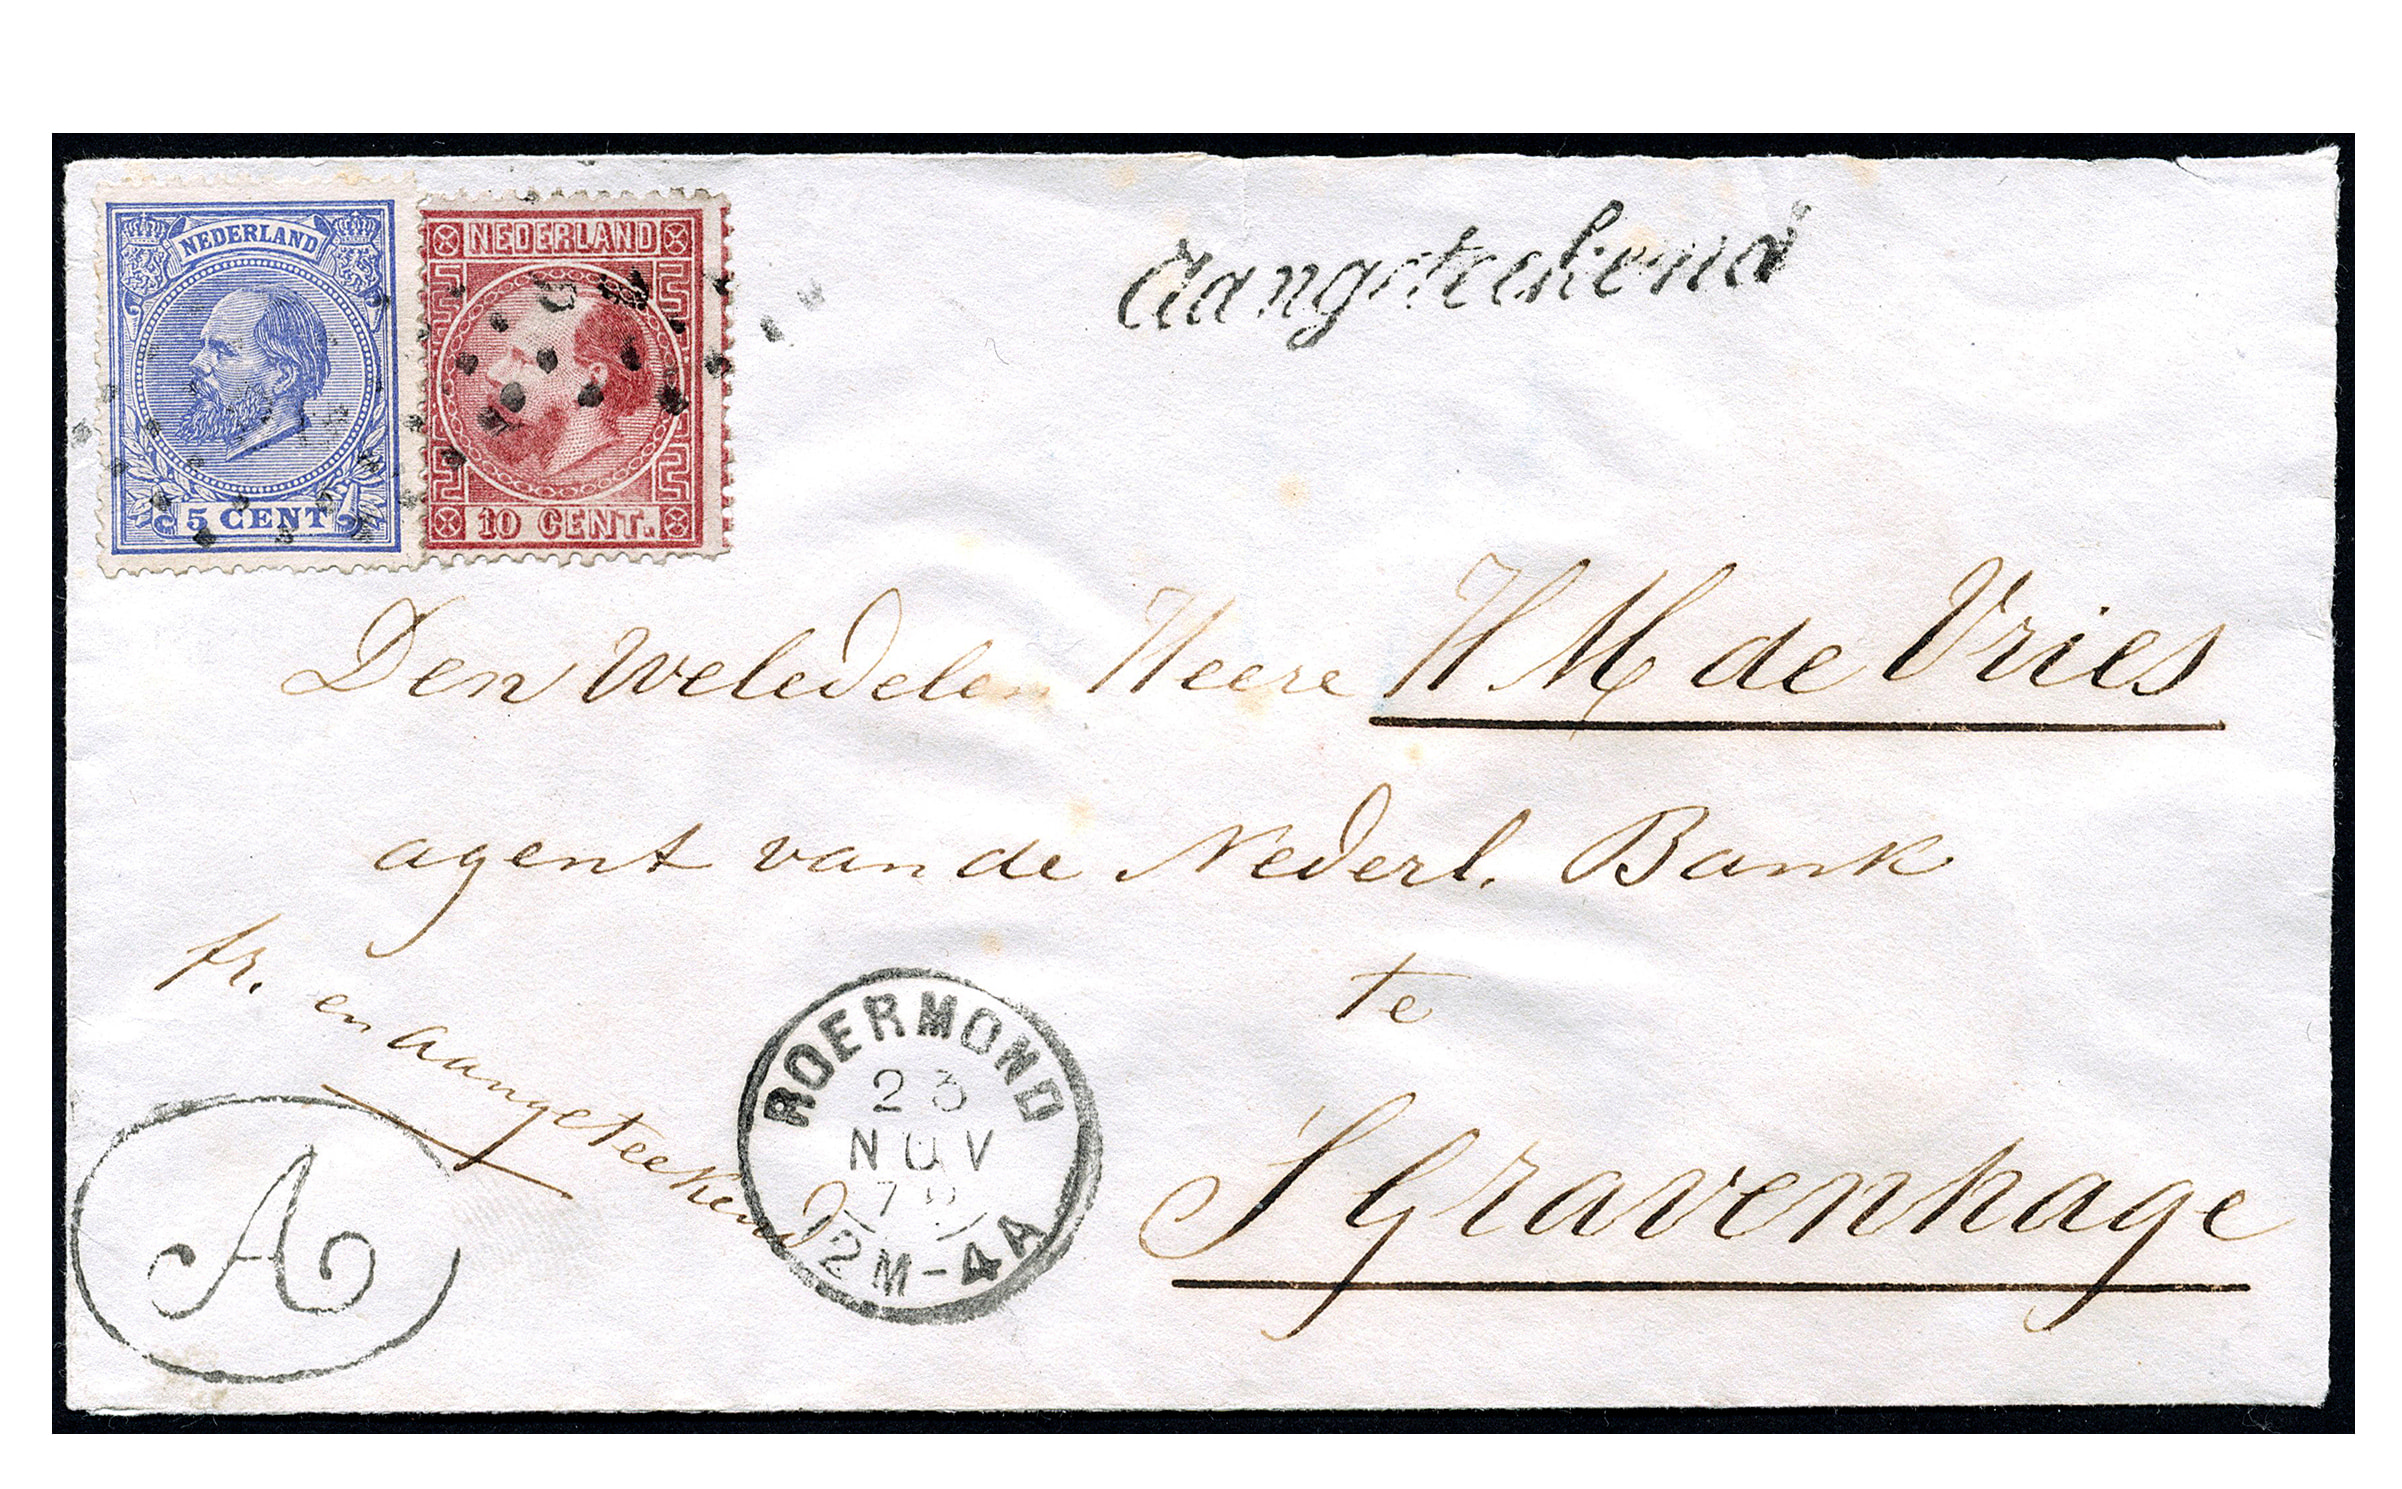 NEDERLAND
5 CENT
NEDERLAND
10 CENT.
Aangeteekend
Den Weledelen Heere H M de Vries
agent van de Nederl. Bank
te
S' Gravenhage
fr. en aangeteekend
A
ROERMOND
23
NOV
12M-4A